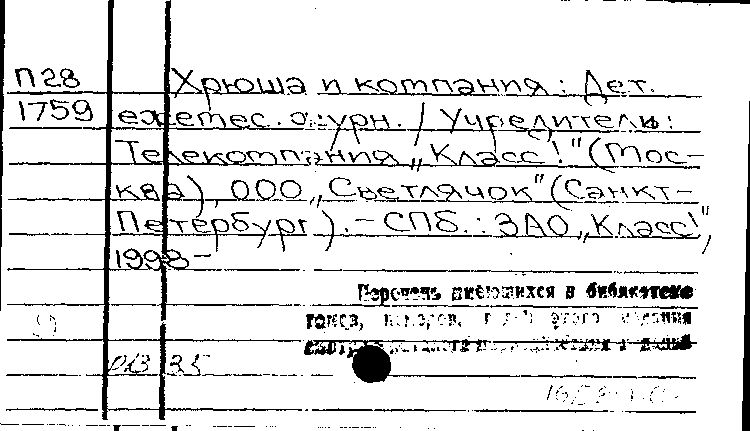 П28 Хрюша и компания : Дет.
1759 ежемес. журн. / Учредители:
Телекомпания „Класс!" (Мос-
ква), ООО „Светлячок" (Санкт-
Петербург). – СПб. : ЗАО „Класс!",
1998–
Перечень имеющихся в библиотеке
томов, номеров, этого издания